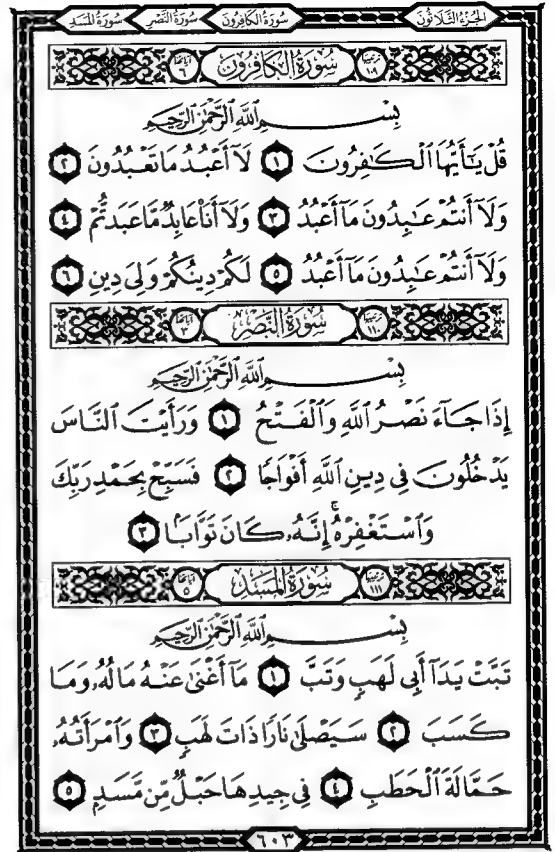 الجزء الثلاثون سورة الكافرون سورة النصر سورة المسد
ترتيبها ١٠٩ سورة الكافرون آياتها ٦
بِسْمِ ٱللَّهِ ٱلرَّحْمَٰنِ ٱلرَّحِيمِ
قُلْ يَٰٓأَيُّهَا ٱلْكَٰفِرُونَ ١ لَآ أَعْبُدُ مَا تَعْبُدُونَ ٢
وَلَآ أَنتُمْ عَٰبِدُونَ مَآ أَعْبُدُ ٣ وَلَآ أَنَا۠ عَابِدٌ مَّا عَبَدتُّمْ ٤
وَلَآ أَنتُمْ عَٰبِدُونَ مَآ أَعْبُدُ ٥ لَكُمْ دِينُكُمْ وَلِىَ دِينِ ٦
ترتيبها ١١٠ سورة النصر آياتها ٣
بِسْمِ ٱللَّهِ ٱلرَّحْمَٰنِ ٱلرَّحِيمِ
إِذَا جَآءَ نَصْرُ ٱللَّهِ وَٱلْفَتْحُ ١ وَرَأَيْتَ ٱلنَّاسَ
يَدْخُلُونَ فِى دِينِ ٱللَّهِ أَفْوَاجًا ٢ فَسَبِّحْ بِحَمْدِ رَبِّكَ
وَٱسْتَغْفِرْهُ ۚ إِنَّهُۥ كَانَ تَوَّابًۢا ٣
ترتيبها ١١١ سورة المسد آياتها ٥
بِسْمِ ٱللَّهِ ٱلرَّحْمَٰنِ ٱلرَّحِيمِ
تَبَّتْ يَدَآ أَبِى لَهَبٍ وَتَبَّ ١ مَآ أَغْنَىٰ عَنْهُ مَالُهُۥ وَمَا
كَسَبَ ٢ سَيَصْلَىٰ نَارًا ذَاتَ لَهَبٍ ٣ وَٱمْرَأَتُهُۥ
حَمَّالَةَ ٱلْحَطَبِ ٤ فِى جِيدِهَا حَبْلٌ مِّن مَّسَدٍۭ ٥
٦٠٣